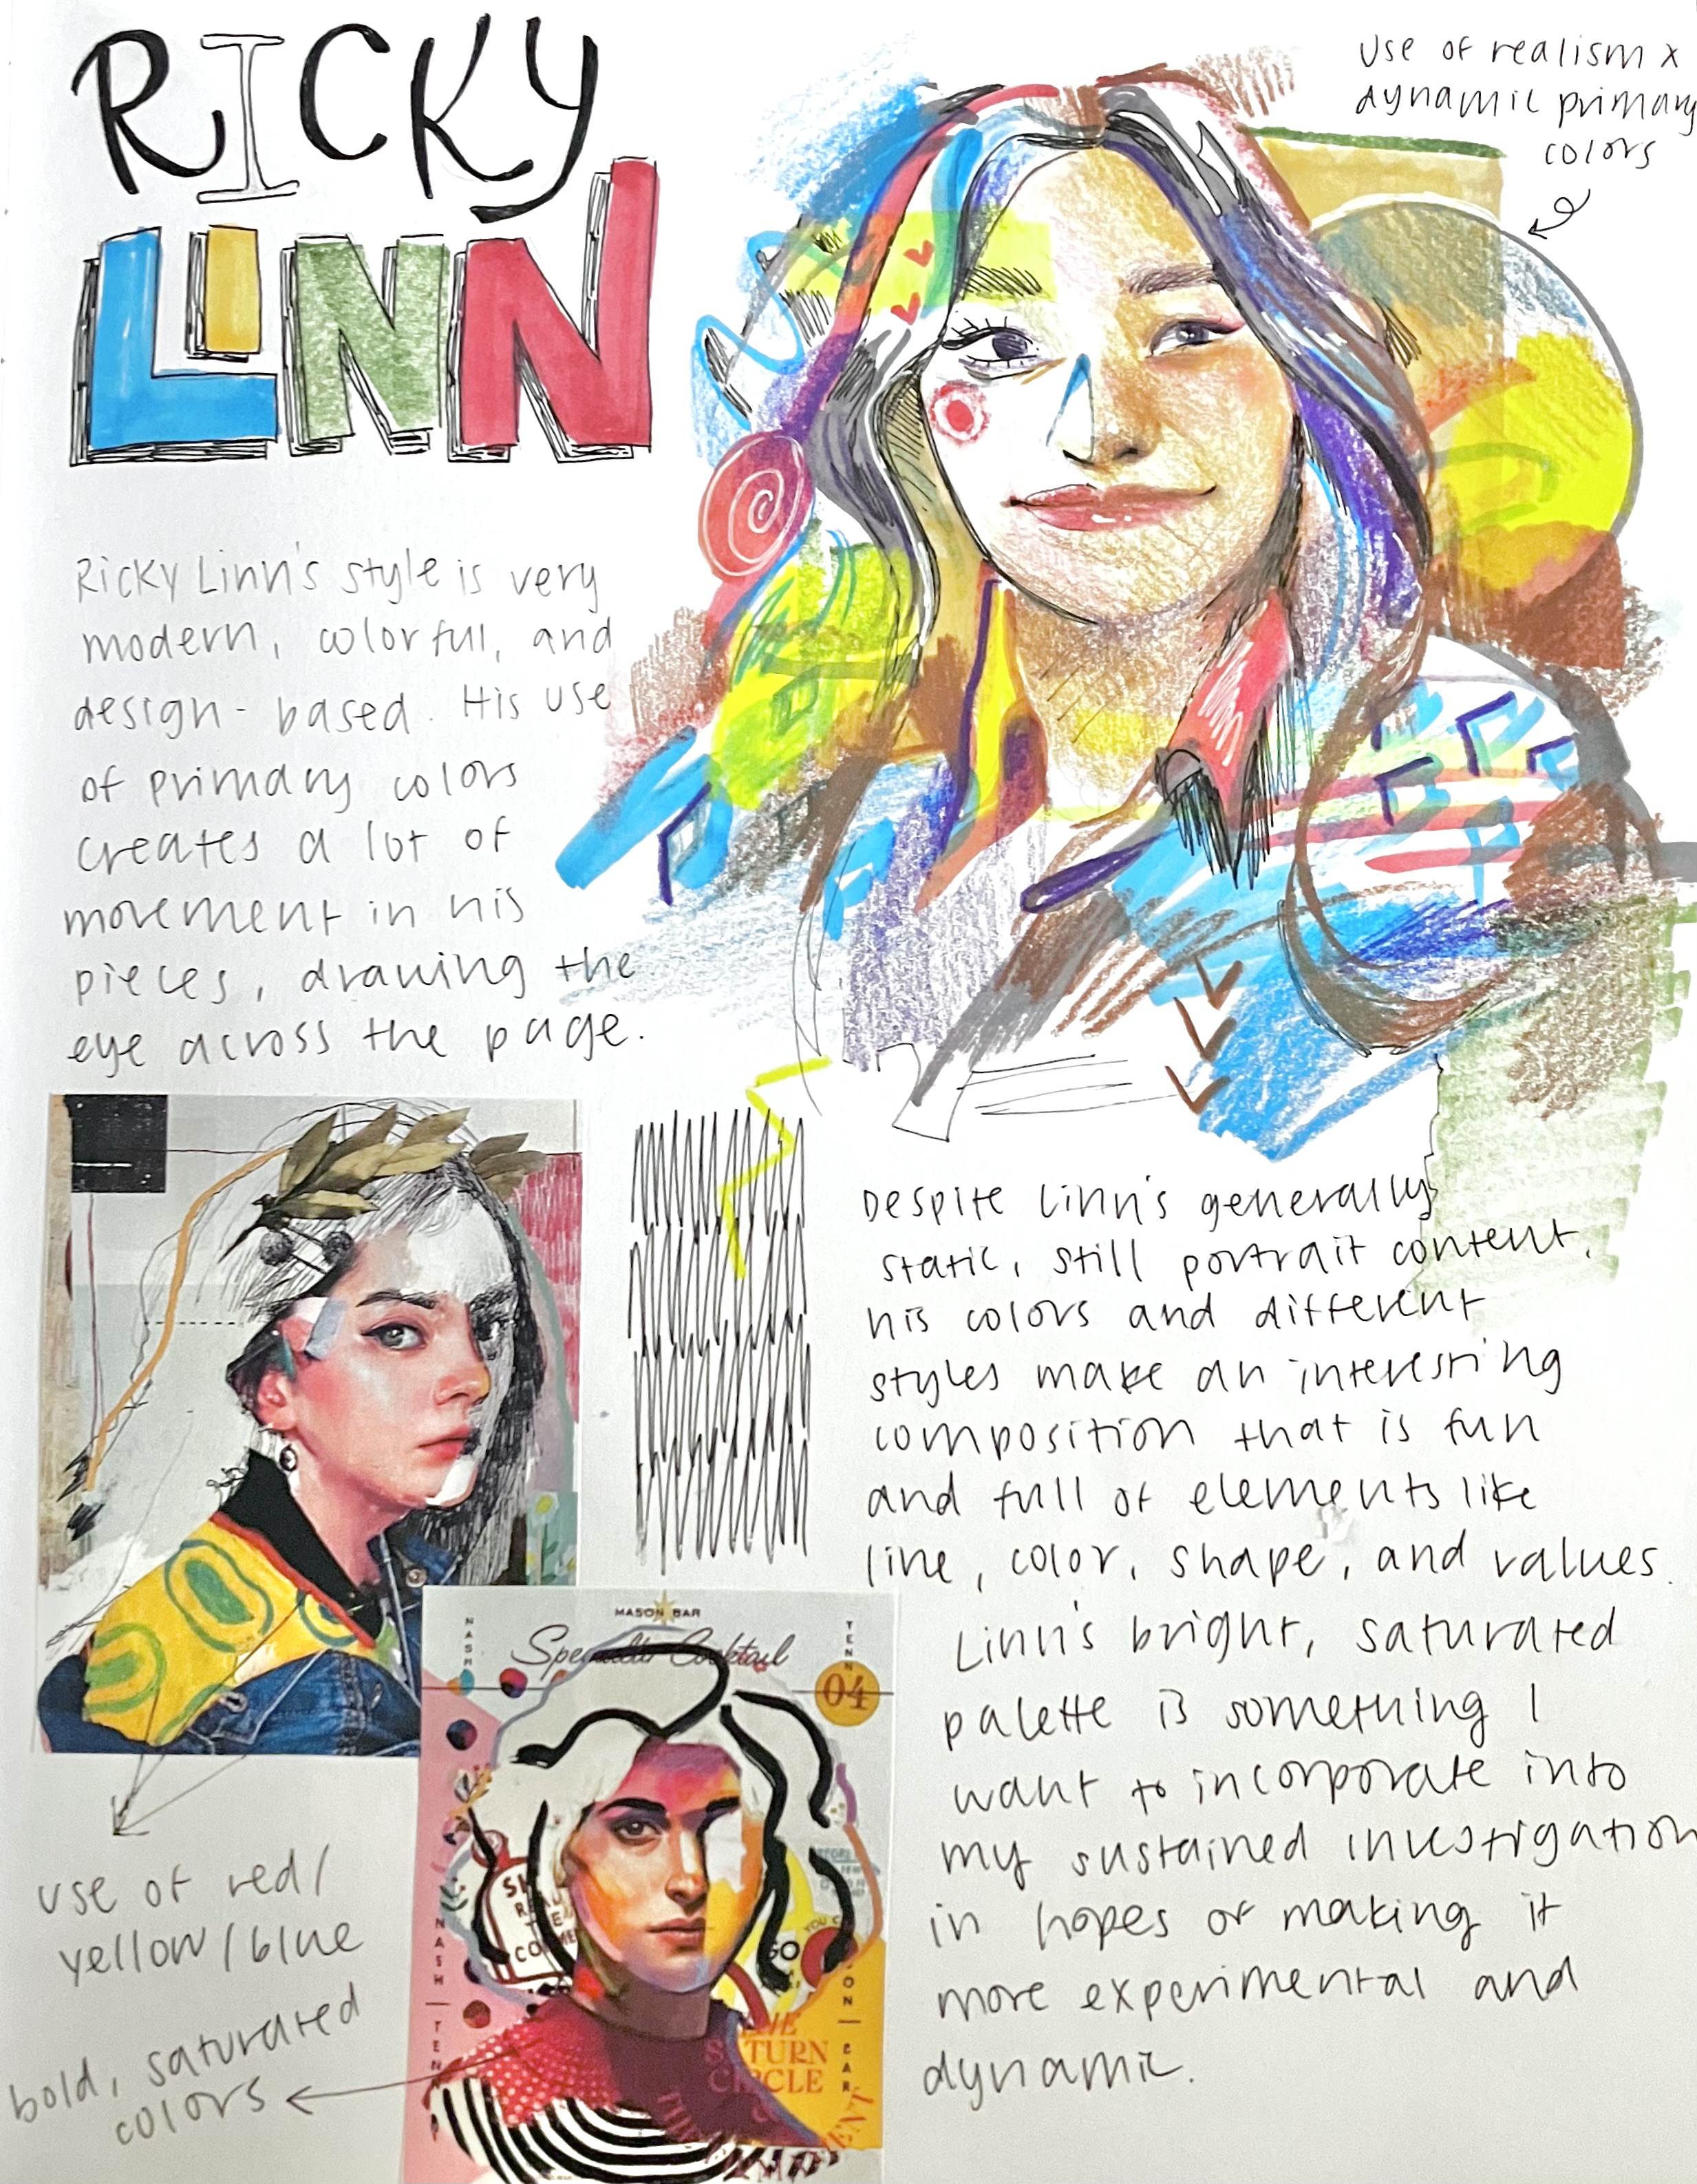 RICKY
LINN
use of realism x
dynamic primary
colors
Ricky Linn's style is very
modern, colorful, and
design-based. His use
of primary colors
creates a lot of
movement in his
pieces, drawing the
eye across the page.
Despite Linn's generally
static, still portrait content,
his colors and different
styles make an interesting
composition that is fun
and full of elements like
line, color, shape, and values.
Linn's bright, saturated
palette is something I
want to incorporate into
my sustained investigation
in hopes of making it
more experimental and
dynamic.
use of red/
yellow/blue
bold, saturated
colors
MASON BAR
Specialty Cocktail
NASH
TENN
04
NASH — TEN
SATURN
CIRCLE
BAR